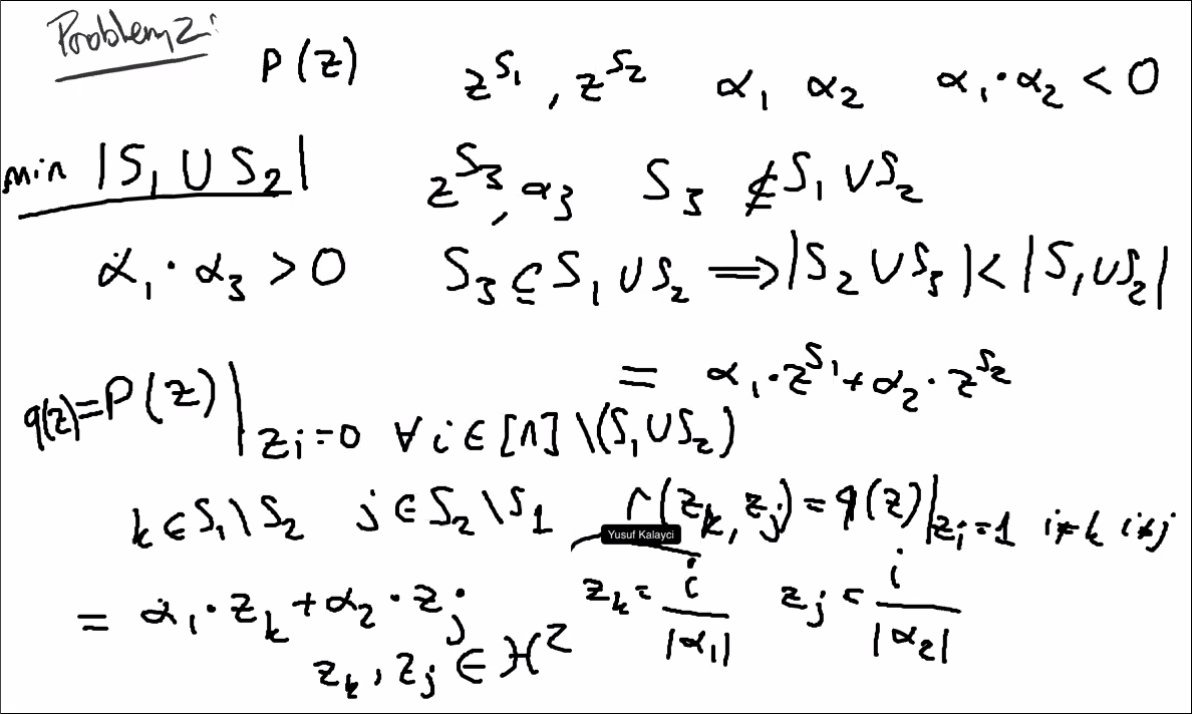 Problem 2:
P(z) z^{S_1}, z^{S_2} α_1 α_2 α_1·α_2 < 0
min |S_1 ∪ S_2| z^{S_3}, α_3 S_3 ⊄ S_1 ∪ S_2
α_1·α_3 > 0 S_3 ⊆ S_1 ∪ S_2 ⟹ |S_2 ∪ S_3| < |S_1 ∪ S_2|
q(z) = P(z)|_{z_i=0 ∀ i ∈ [n] \ (S_1 ∪ S_2)} = α_1·z^{S_1} + α_2·z^{S_2}
k ∈ S_1 \ S_2 j ∈ S_2 \ S_1 r(z_k, z_j) = q(z)|_{z_i=1 i≠k i≠j}
Yusuf Kalayci
= α_1·z_k + α_2·z_j z_k = i/|α_1| z_j = i/|α_2|
z_k, z_j ∈ H^2